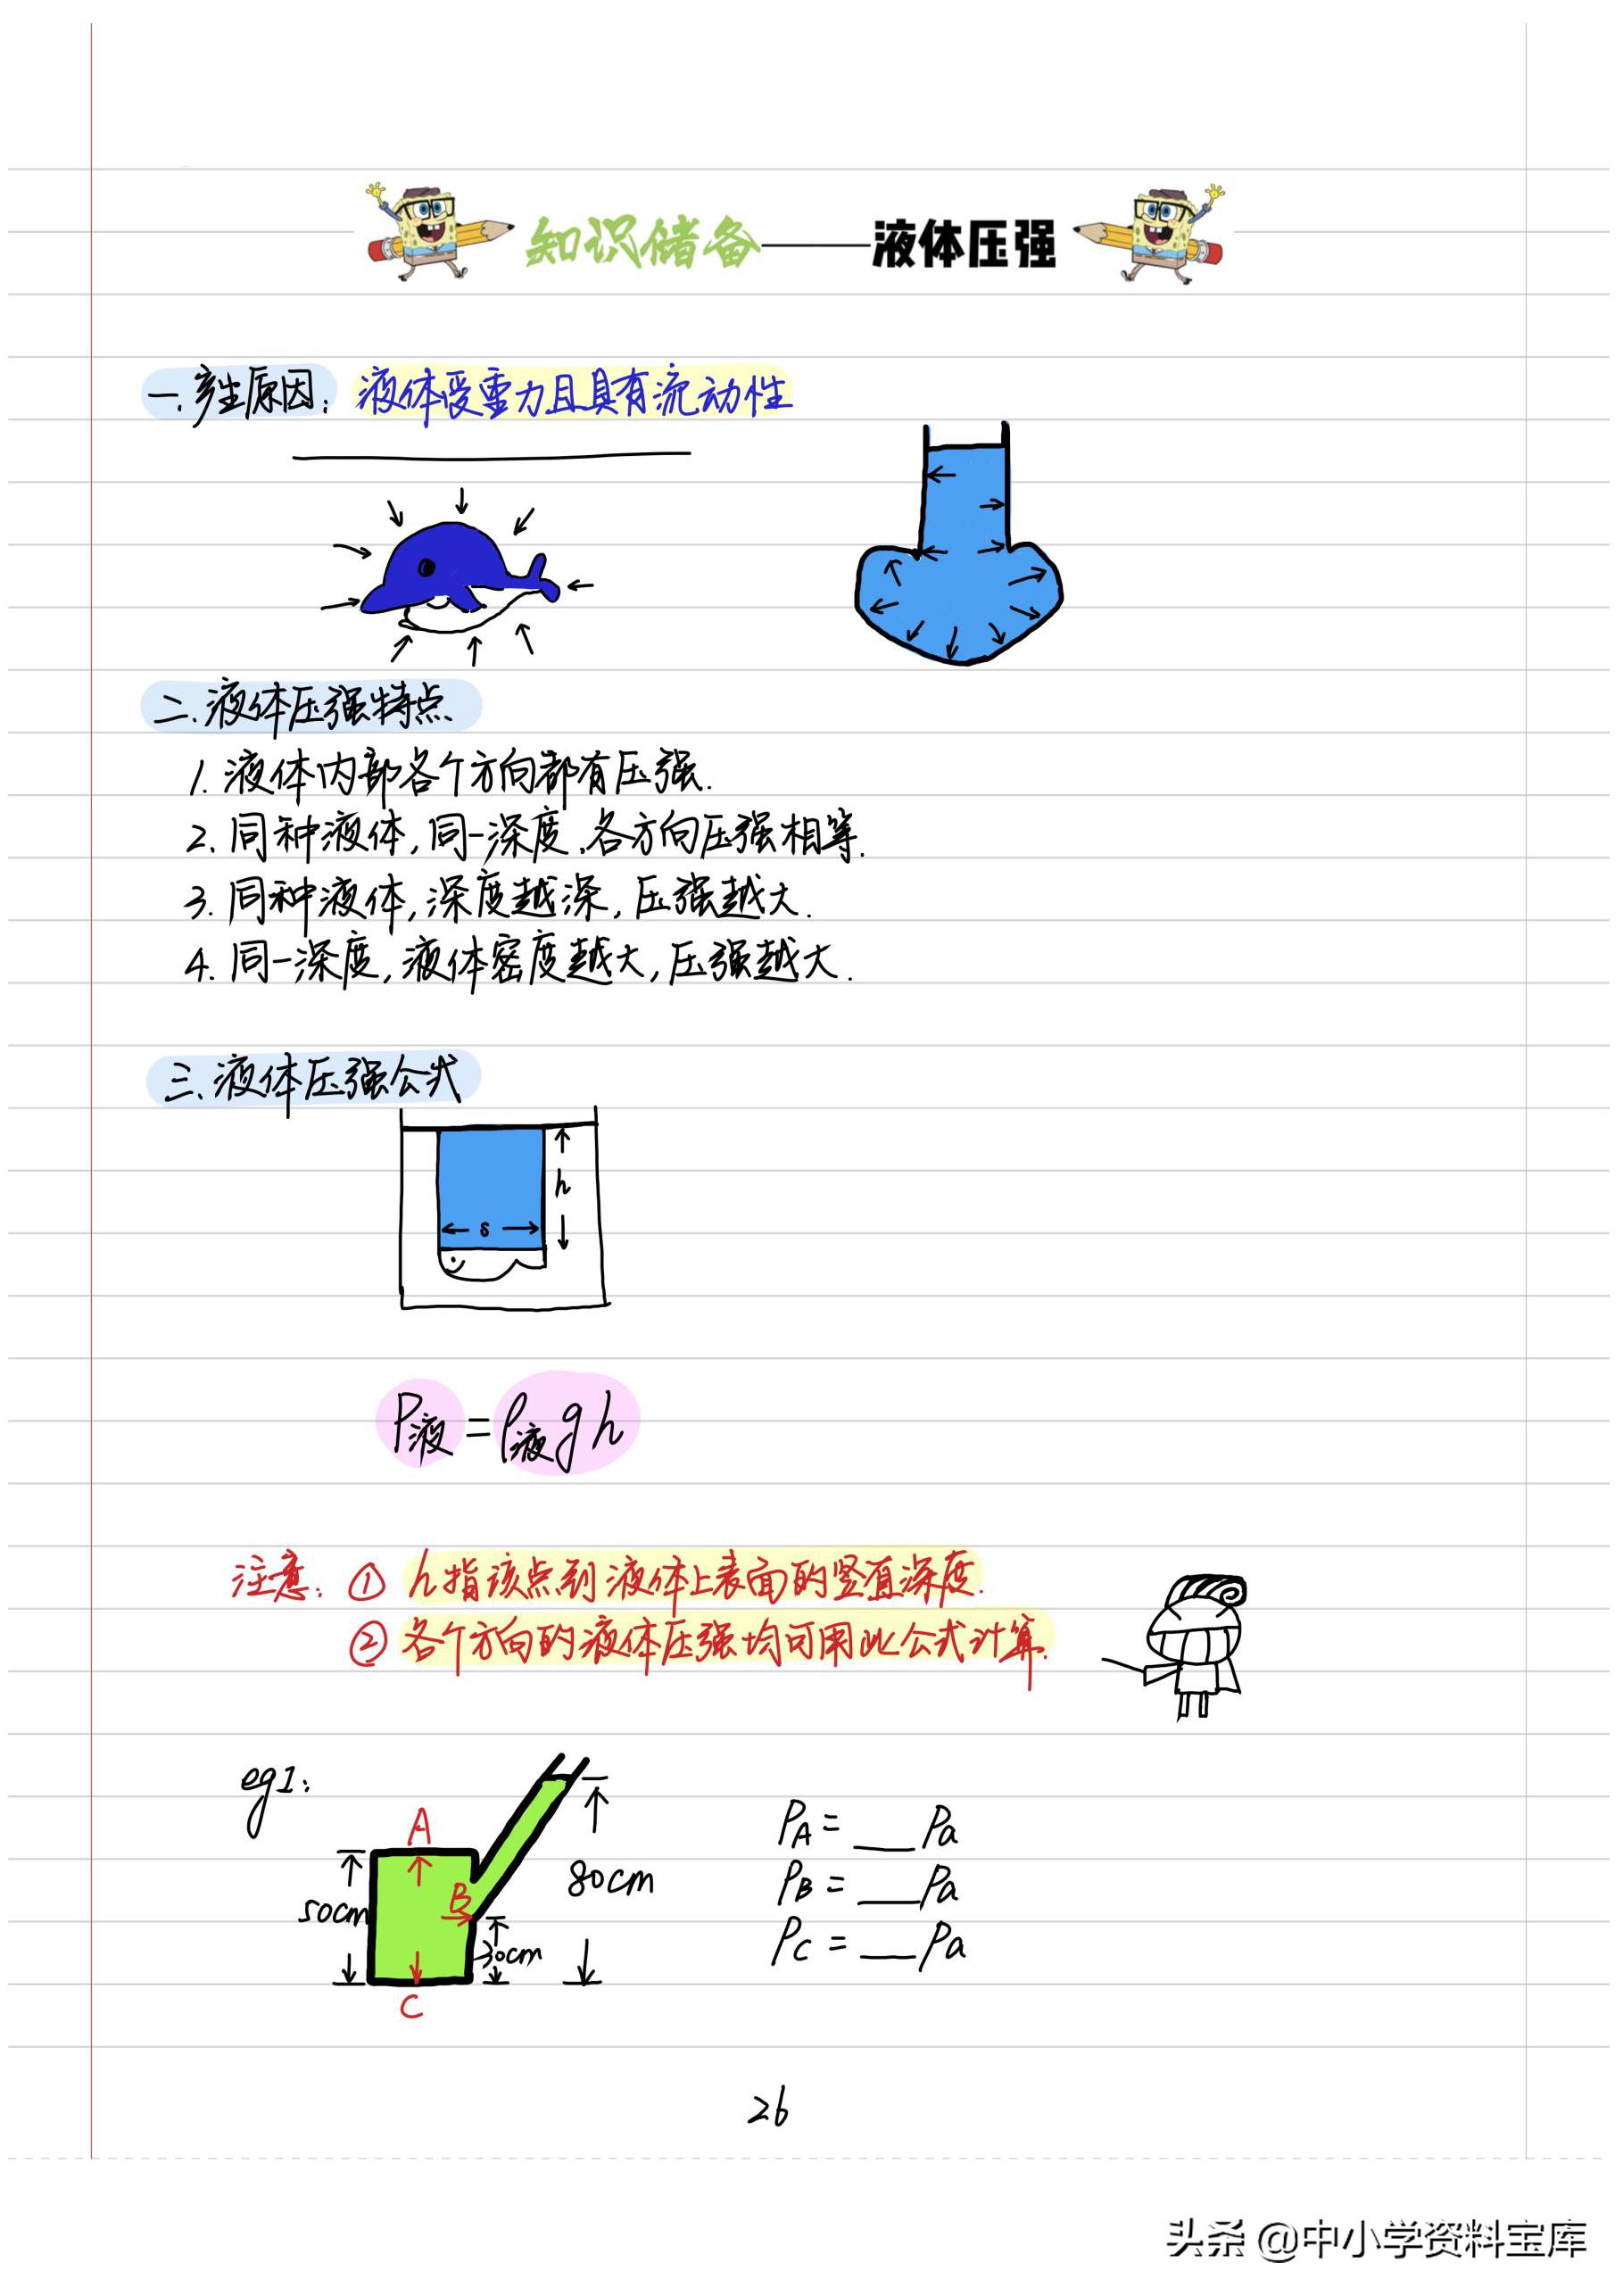 知识储备——液体压强
一.产生原因：液体受重力且具有流动性
二.液体压强特点
1.液体内部各个方向都有压强.
2.同种液体,同一深度.各方向压强相等.
3.同种液体,深度越深,压强越大.
4.同一深度,液体密度越大,压强越大.
三.液体压强公式
h
s
P液=ρ液gh
注意：①h指该点到液体上表面的竖直深度.
②各个方向的液体压强均可用此公式计算.
eg1:
A
B
C
50cm
30cm
80cm
PA=___Pa
PB=___Pa
PC=___Pa
26
头条 @中小学资料宝库